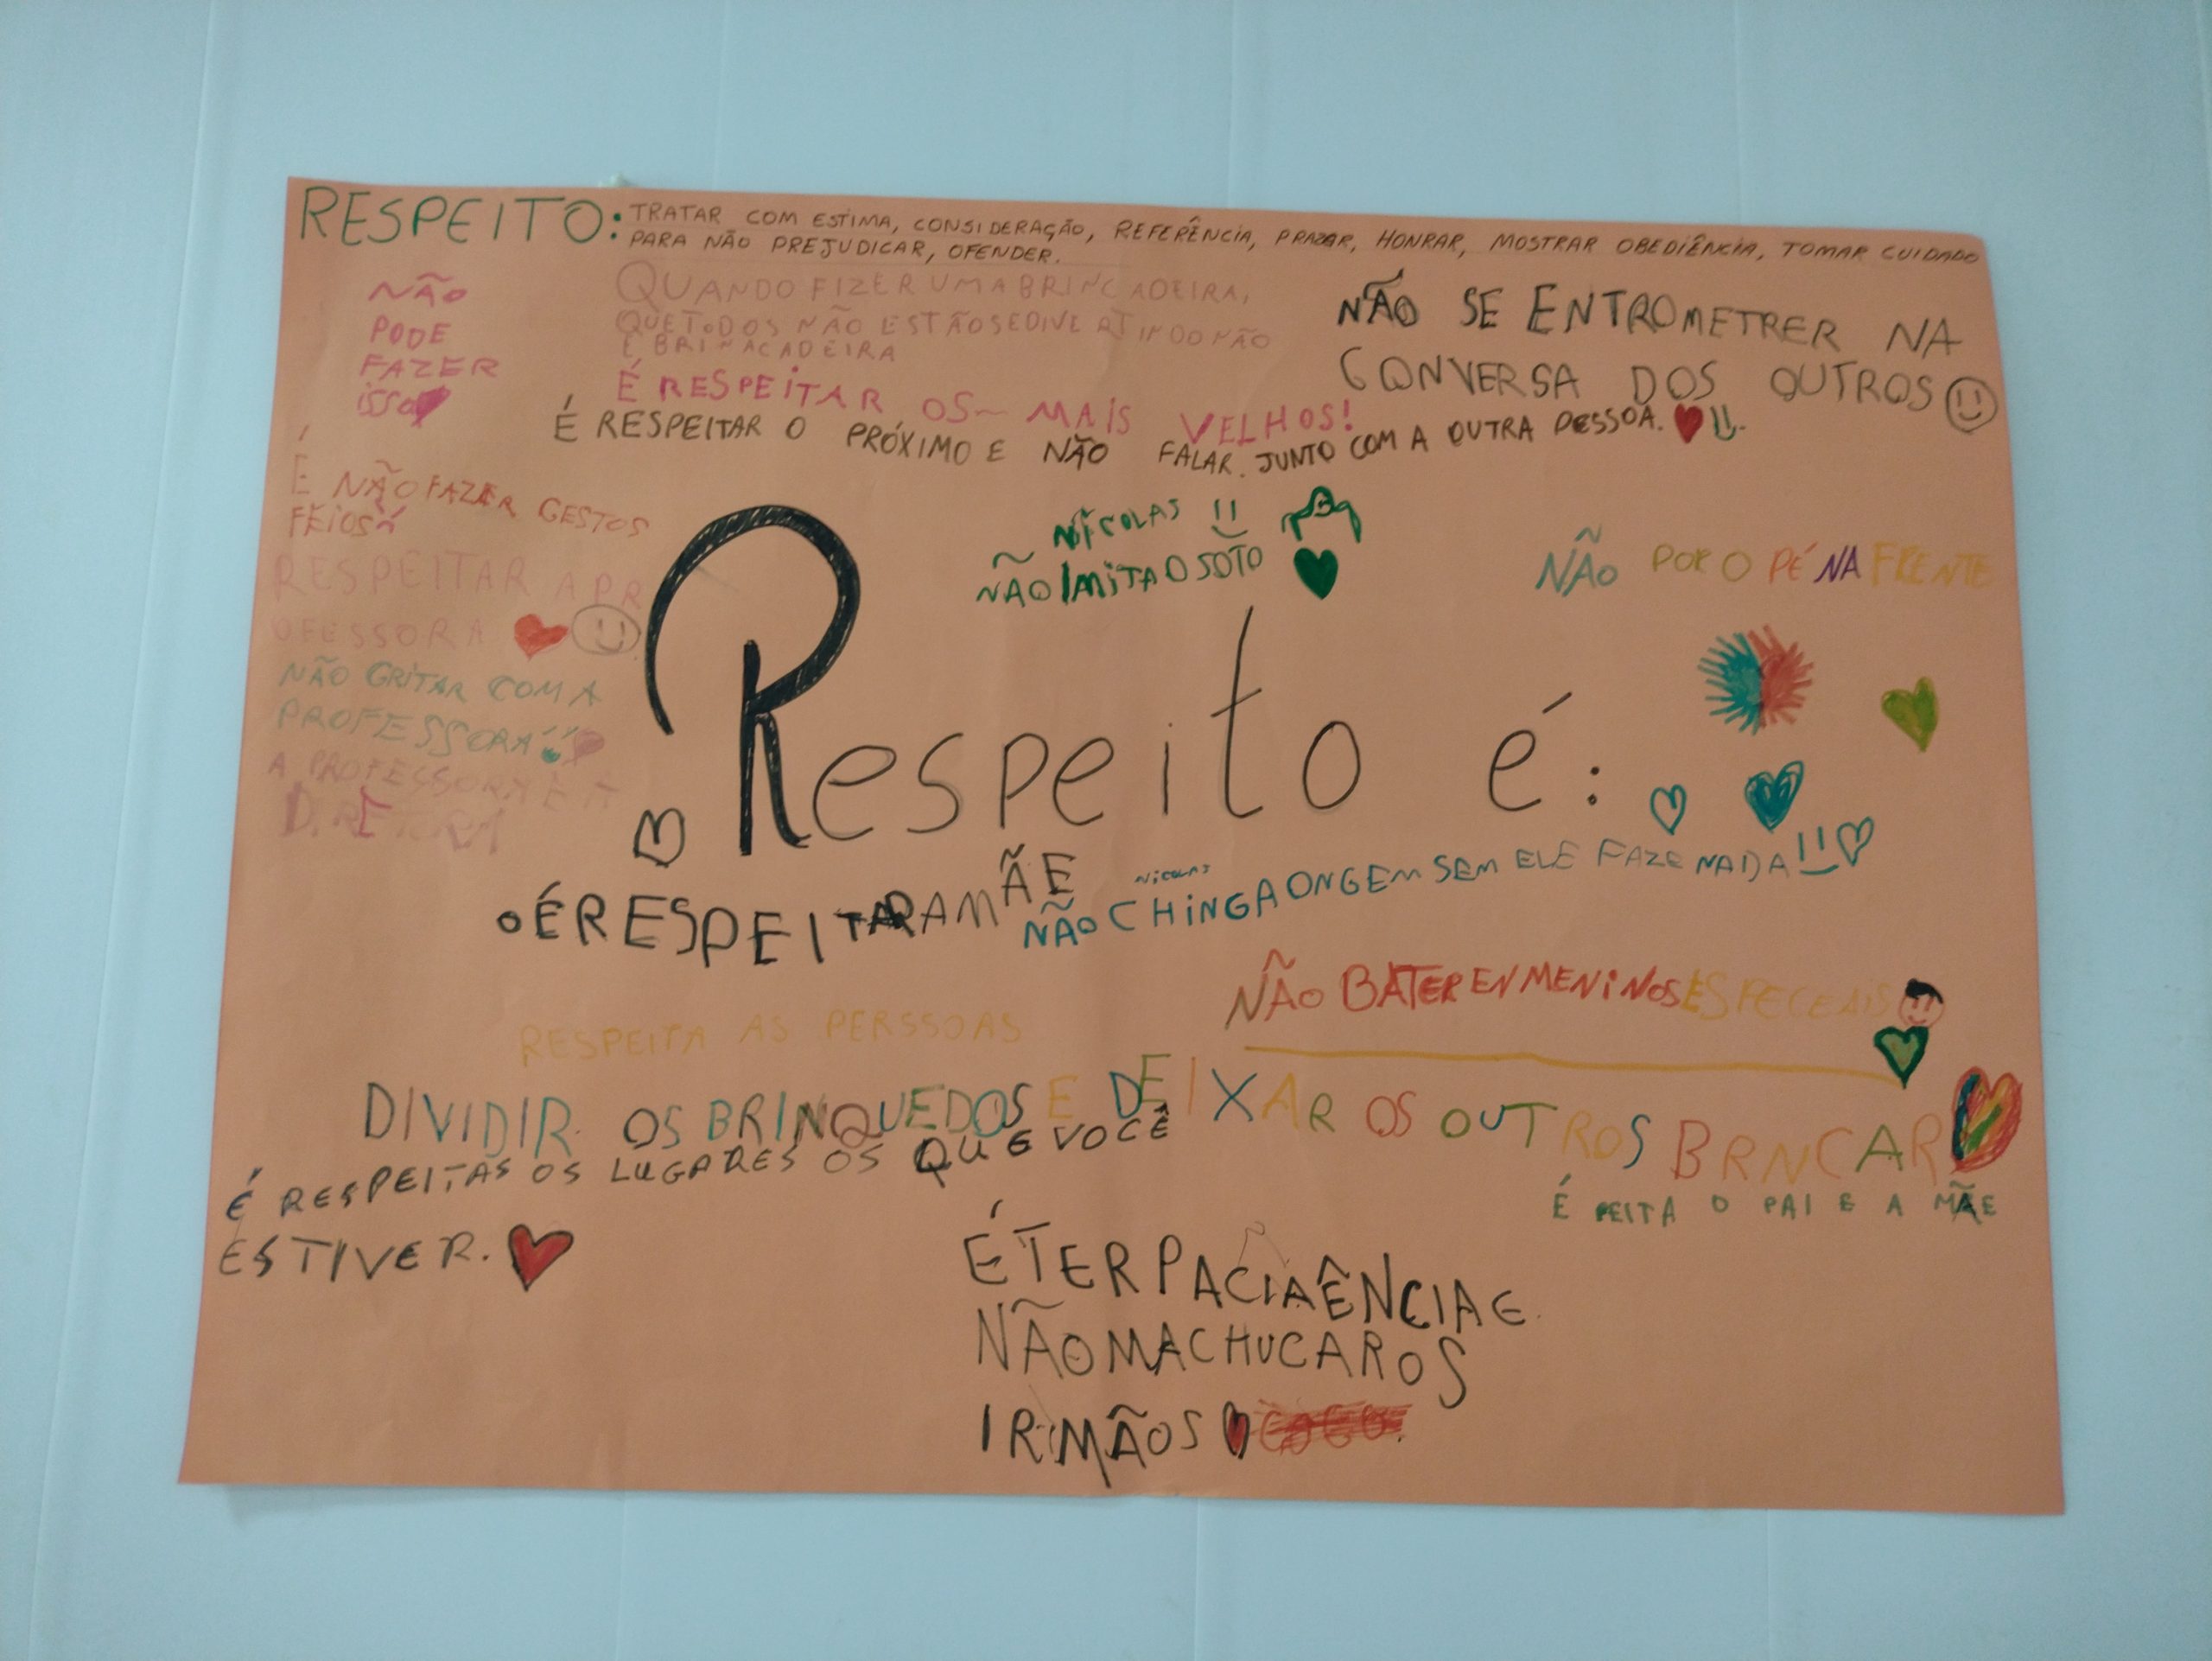 RESPEITO: TRATAR COM ESTIMA, CONSIDERAÇÃO, REFERÊNCIA, PRAZAR, HONRAR, MOSTRAR OBEDIÊNCIA, TOMAR CUIDADO
PARA NÃO PREJUDICAR, OFENDER.
NÃO
PODE
FAZER
isso
QUANDO FIZER UMA BRINCADEIRA,
QUE TODOS NÃO ESTÃO SE DIVERTINDO NÃO
É BRINACADEIRA
É RESPEITAR OS MAIS VELHOS!
NÃO SE ENTROMETRER NA
CONVERSA DOS OUTROS
É RESPEITAR O PRÓXIMO E NÃO FALAR JUNTO COM A OUTRA PESSOA.
É NÃO FAZER GESTOS
FEIOS
RESPEITAR A PR
OFESSORA
NÃO GRITAR COM A
PROFESSORA
A PROFESSORA E A
DIRETORA
NICOLAS
NÃO IMITA O SOTO
NÃO POR O PÉ NA FRENTE
Respeito é:
É RESPEITAR A MÃE
NICOLAS
NÃO CHINGA ONGEM SEM ELE FAZE NADA
NÃO BATER EN MENINOS ESPECEAIS
RESPEITA AS PERSSOAS
DIVIDIR OS BRINQUEDOS E DEIXAR OS OUTROS BRNCAR
É RESPEITAS OS LUGARES OS QUE VOCÊ
ESTIVER.
É PEITA O PAI E A MÃE
É TER PACIAÊNCIA E
NÃO MACHUCAR OS
IRMÃOS